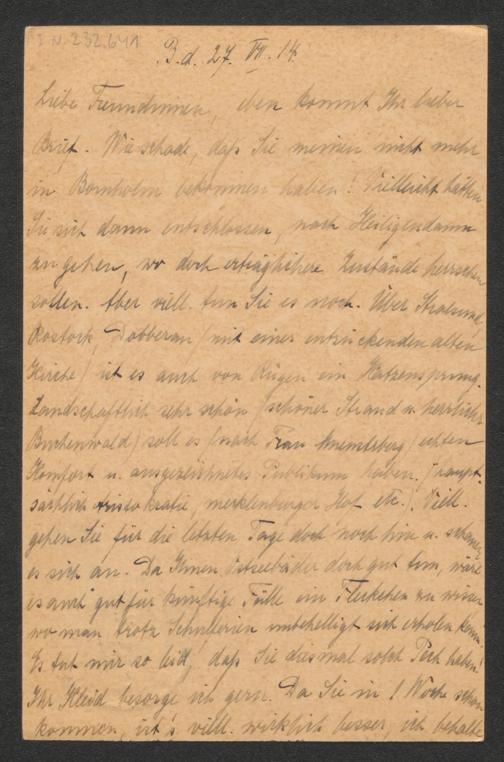 I.N. 232.641
B.d. 27. VII. 14
Liebe Freundinnen, eben kommt Ihr lieber
Brief. Wie schade, daß Sie meinen nicht mehr
in Bornholm bekommen haben! Vielleicht hätten
Sie sich dann entschlossen, nach Heiligendamm
zu gehen, wo doch erträglichere Zustände herrschen
sollen. Aber viell. tun Sie es noch. Über Stralsund,
Rostock, Dobberan (mit einer entzückenden alten
Kirche) ist es auch von Rügen ein Katzensprung.
Landschaftlich sehr schön (schöner Strand u. herrlicher
Buchenwald) soll es (nach Frau) echten
Komfort u. ausgezeichnetes Publikum haben. (haupt-
sächlich Aristokratie, mecklenburger Hof etc.) Viell.
gehen Sie für die letzten Tage doch noch hin u. schauen
es sich an. Da Ihnen Ostseebäder doch gut tun, wäre
es auch gut für künftige Fälle ein Fleckchen zu wissen
wo man trotz Schulferien unbehelligt sich erholen kann.
Es tut mir so leid, daß Sie diesmal solch Pech haben!
Ihr Kleid besorge ich gern. Da Sie in 1 Woche schon
kommen, ist's viell. wirklich besser, ich behalte